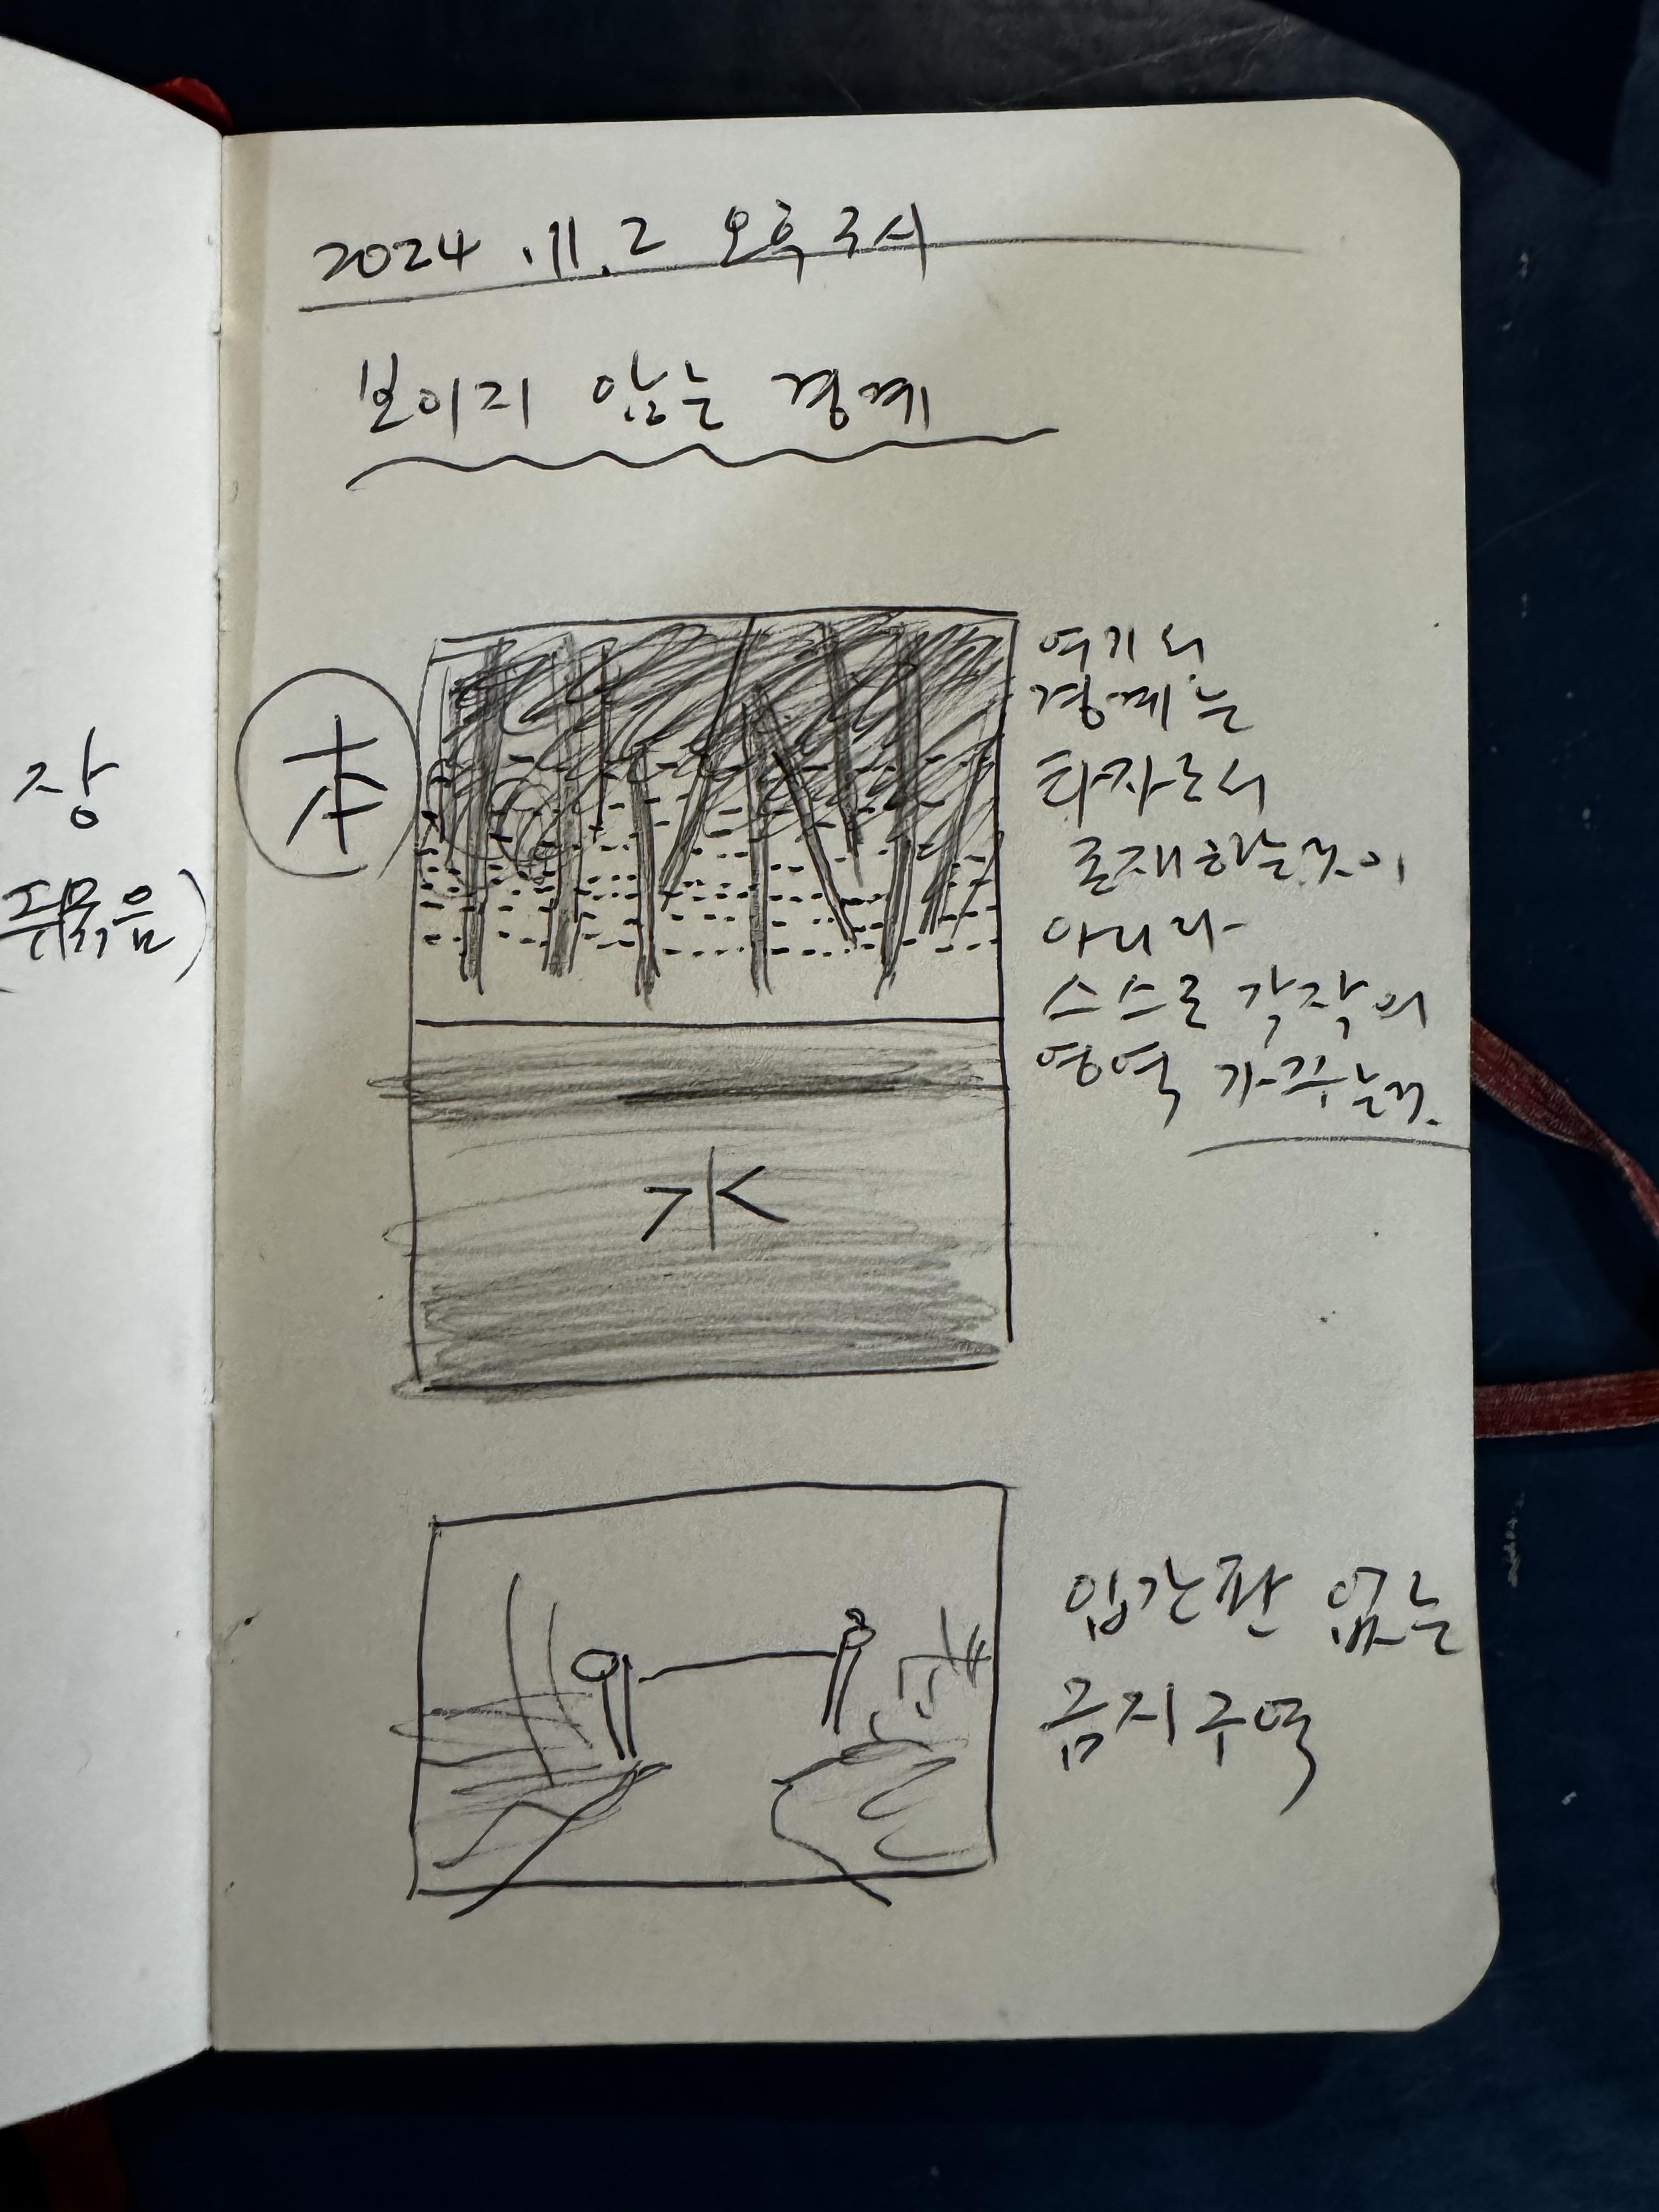 장
2024.11.2 오후 3시
보이지 않는 경계
本
여기서
경계는
타자로서
존재하는것이
아니라
스스로 각각의
영역 가꾸는거.
水
입간판 없는
금지구역